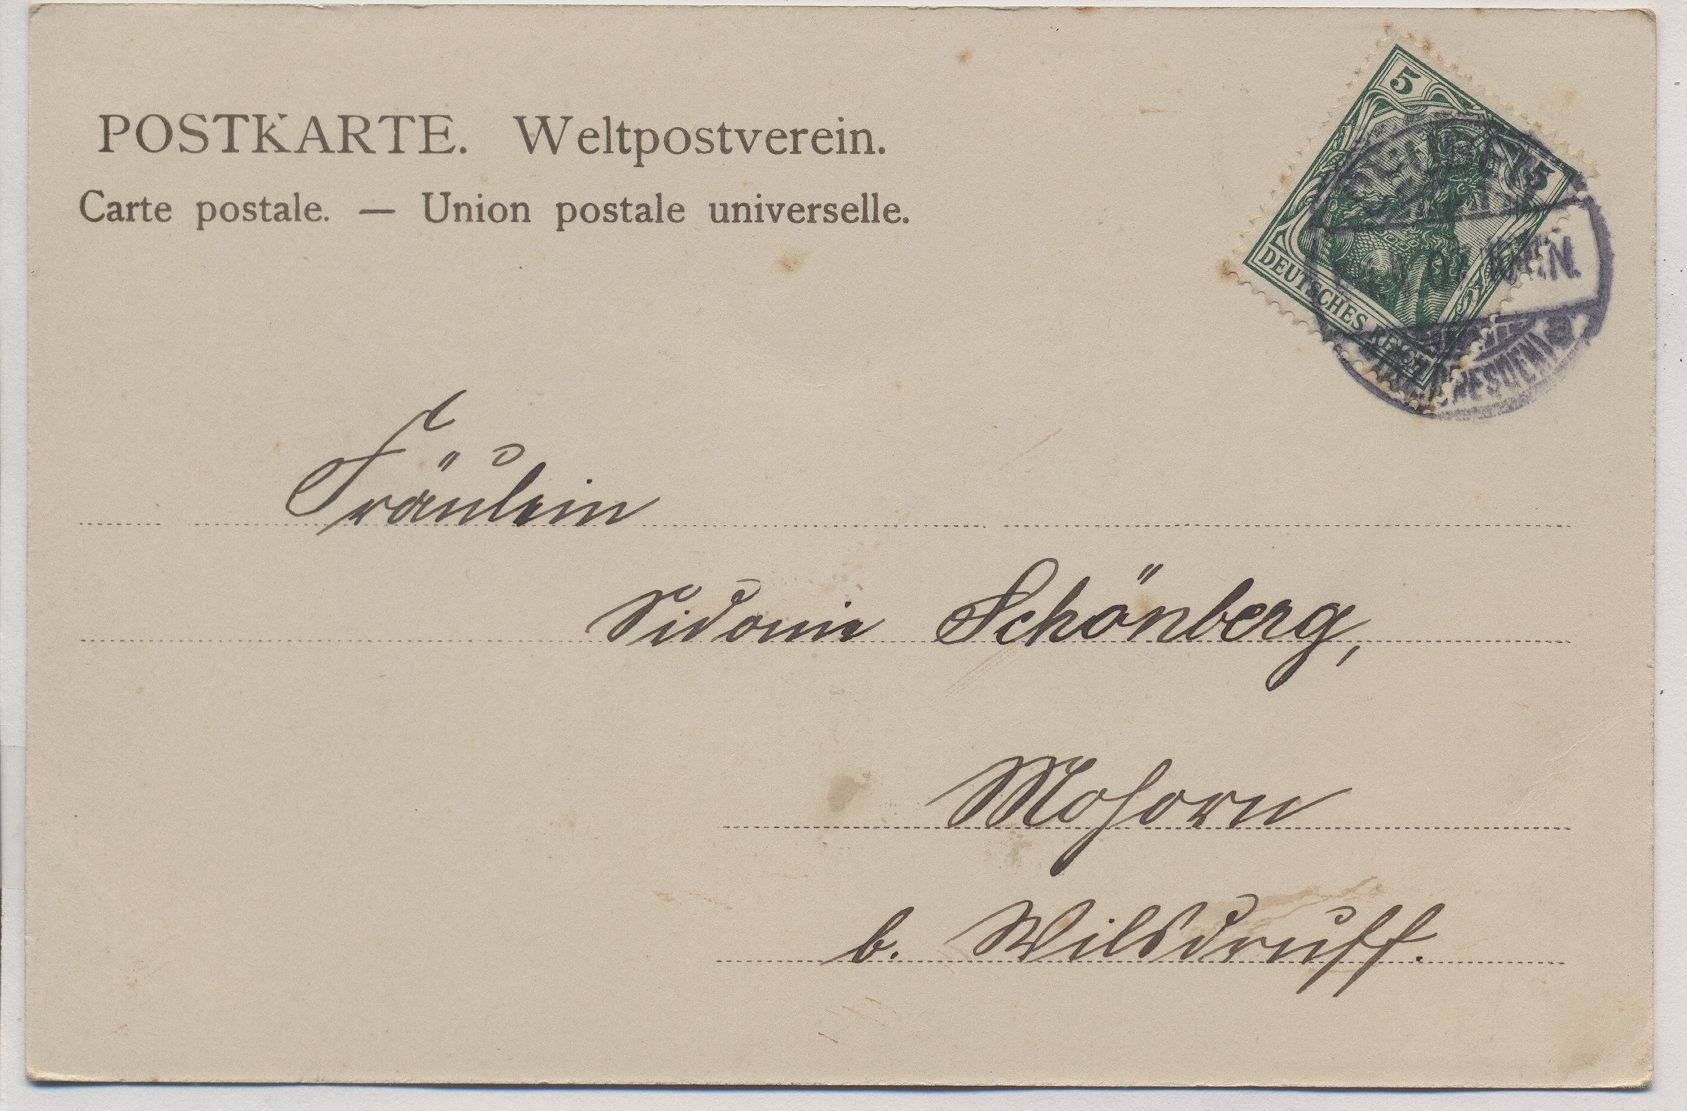 POSTKARTE. Weltpostverein.
Carte postale. — Union postale universelle.
5 5
DEUTSCHES REICH
Fräulein
Sidonie Schönberg,
Mohorn
b. Wilsdruff.